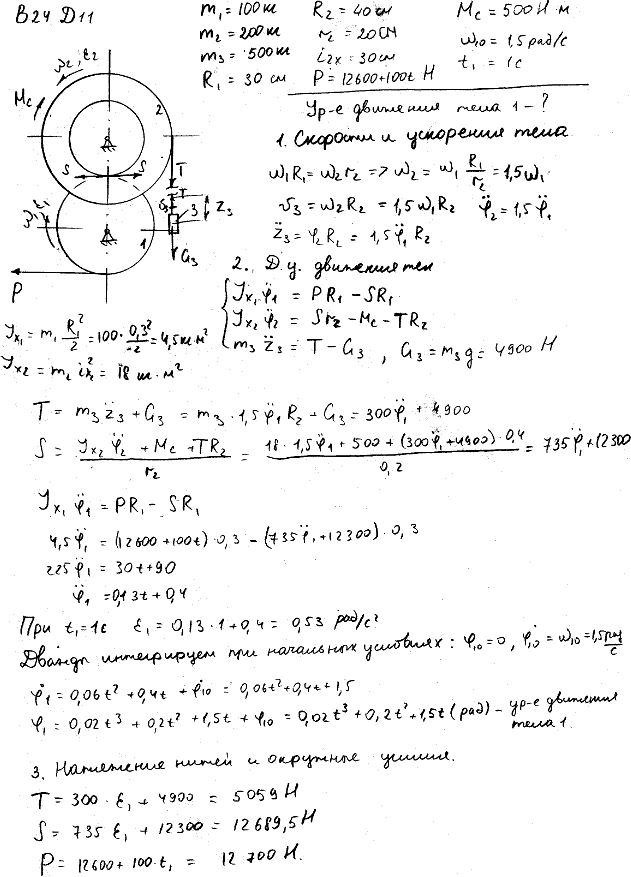 В24 Д11
m₁ = 100 кг   R₂ = 40 см   M_c = 500 Н·м
m₂ = 200 кг   r₂ = 20 см   ω₁₀ = 1,5 рад/с
m₃ = 500 кг   i₂ₓ = 30 см   t₁ = 1 с
R₁ = 30 см   P = 12600 + 100t Н
Ур-е движения тела 1 - ?
1. Скорости и ускорения тела
ω₁R₁ = ω₂r₂ => ω₂ = ω₁ R₁/r₂ = 1,5ω₁
v₃ = ω₂R₂ = 1,5ω₁R₂   φ̈₂ = 1,5φ̈₁
z̈₃ = φ̈₂R₂ = 1,5φ̈₁R₂
ω₂, ε₂
M_c
2
S S
T
T
v₃
3
Z₃
ω₁ ε₁
1
G₃
P
2. Д.у. движения тел
Jx₁ φ̈₁ = PR₁ - SR₁
Jx₂ φ̈₂ = Sr₂ - M_c - TR₂
m₃ z̈₃ = T - G₃ , G₃ = m₃g = 4900 Н
Jx₁ = m₁ R₁²/2 = 100 · 0,3²/2 = 4,5 кг·м²
Jx₂ = m₂ iₓ² = 18 кг·м²
T = m₃ z̈₃ + G₃ = m₃ · 1,5φ̈₁R₂ + G₃ = 300φ̈₁ + 4900
S = (Jx₂ φ̈₂ + M_c + TR₂)/r₂ = (18 · 1,5φ̈₁ + 500 + (300φ̈₁ + 4900) · 0,4)/0,2 = 735φ̈₁ + 12300
Jx₁ φ̈₁ = PR₁ - SR₁
4,5φ̈₁ = (12600 + 100t) · 0,3 - (735φ̈₁ + 12300) · 0,3
225φ̈₁ = 30t + 90
φ̈₁ = 0,13t + 0,4
При t₁ = 1с   ε₁ = 0,13 · 1 + 0,4 = 0,53 рад/с²
Дважды интегрируем при начальных условиях: φ₁₀ = 0, φ̇₁₀ = ω₁₀ = 1,5 рад/с
φ̇₁ = 0,06t² + 0,4t + φ̇₁₀ = 0,06t² + 0,4t + 1,5
φ₁ = 0,02t³ + 0,2t² + 1,5t + φ₁₀ = 0,02t³ + 0,2t² + 1,5t (рад) - ур-е движения тела 1.
3. Натяжение нитей и окружные усилия.
T = 300 · ε₁ + 4900 = 5059 Н
S = 735 ε₁ + 12300 = 12689,5 Н
P = 12600 + 100·t₁ = 12700 Н.